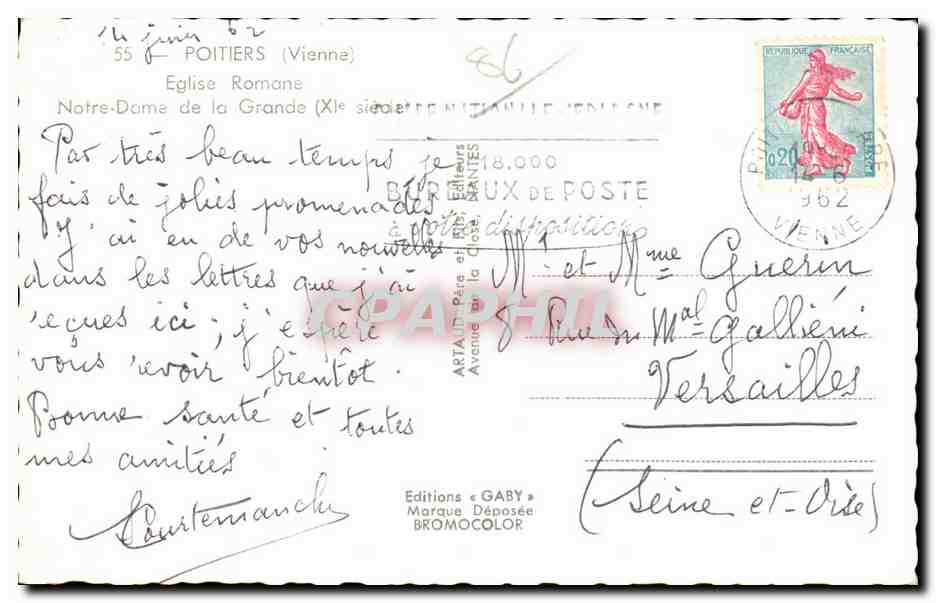 14 juin 62
55 POITIERS (Vienne)
Eglise Romane
Notre-Dame de la Grande (XIe siècle)
Par très beau temps je
fais de jolies promenades
J'ai eu de vos nouvelles
dans les lettres que j'ai
reçues ici ; j'espère
vous revoir bientôt.
Bonne santé et toutes
mes amitiés
Courtemanche
86
CAISSE NATIONALE D'EPARGNE
18.000
BUREAUX DE POSTE
à votre disposition
ARTAUD Père et Fils, Editeurs
Avenue de la Close, NANTES
REPUBLIQUE FRANÇAISE
0,20
POSTES
14-6
1962
VIENNE
Mr et Mme Guerin
8 Rue du Mal Galliéni
Versailles
(Seine et-Oise)
Editions « GABY »
Marque Déposée
BROMOCOLOR
CPAPHIL